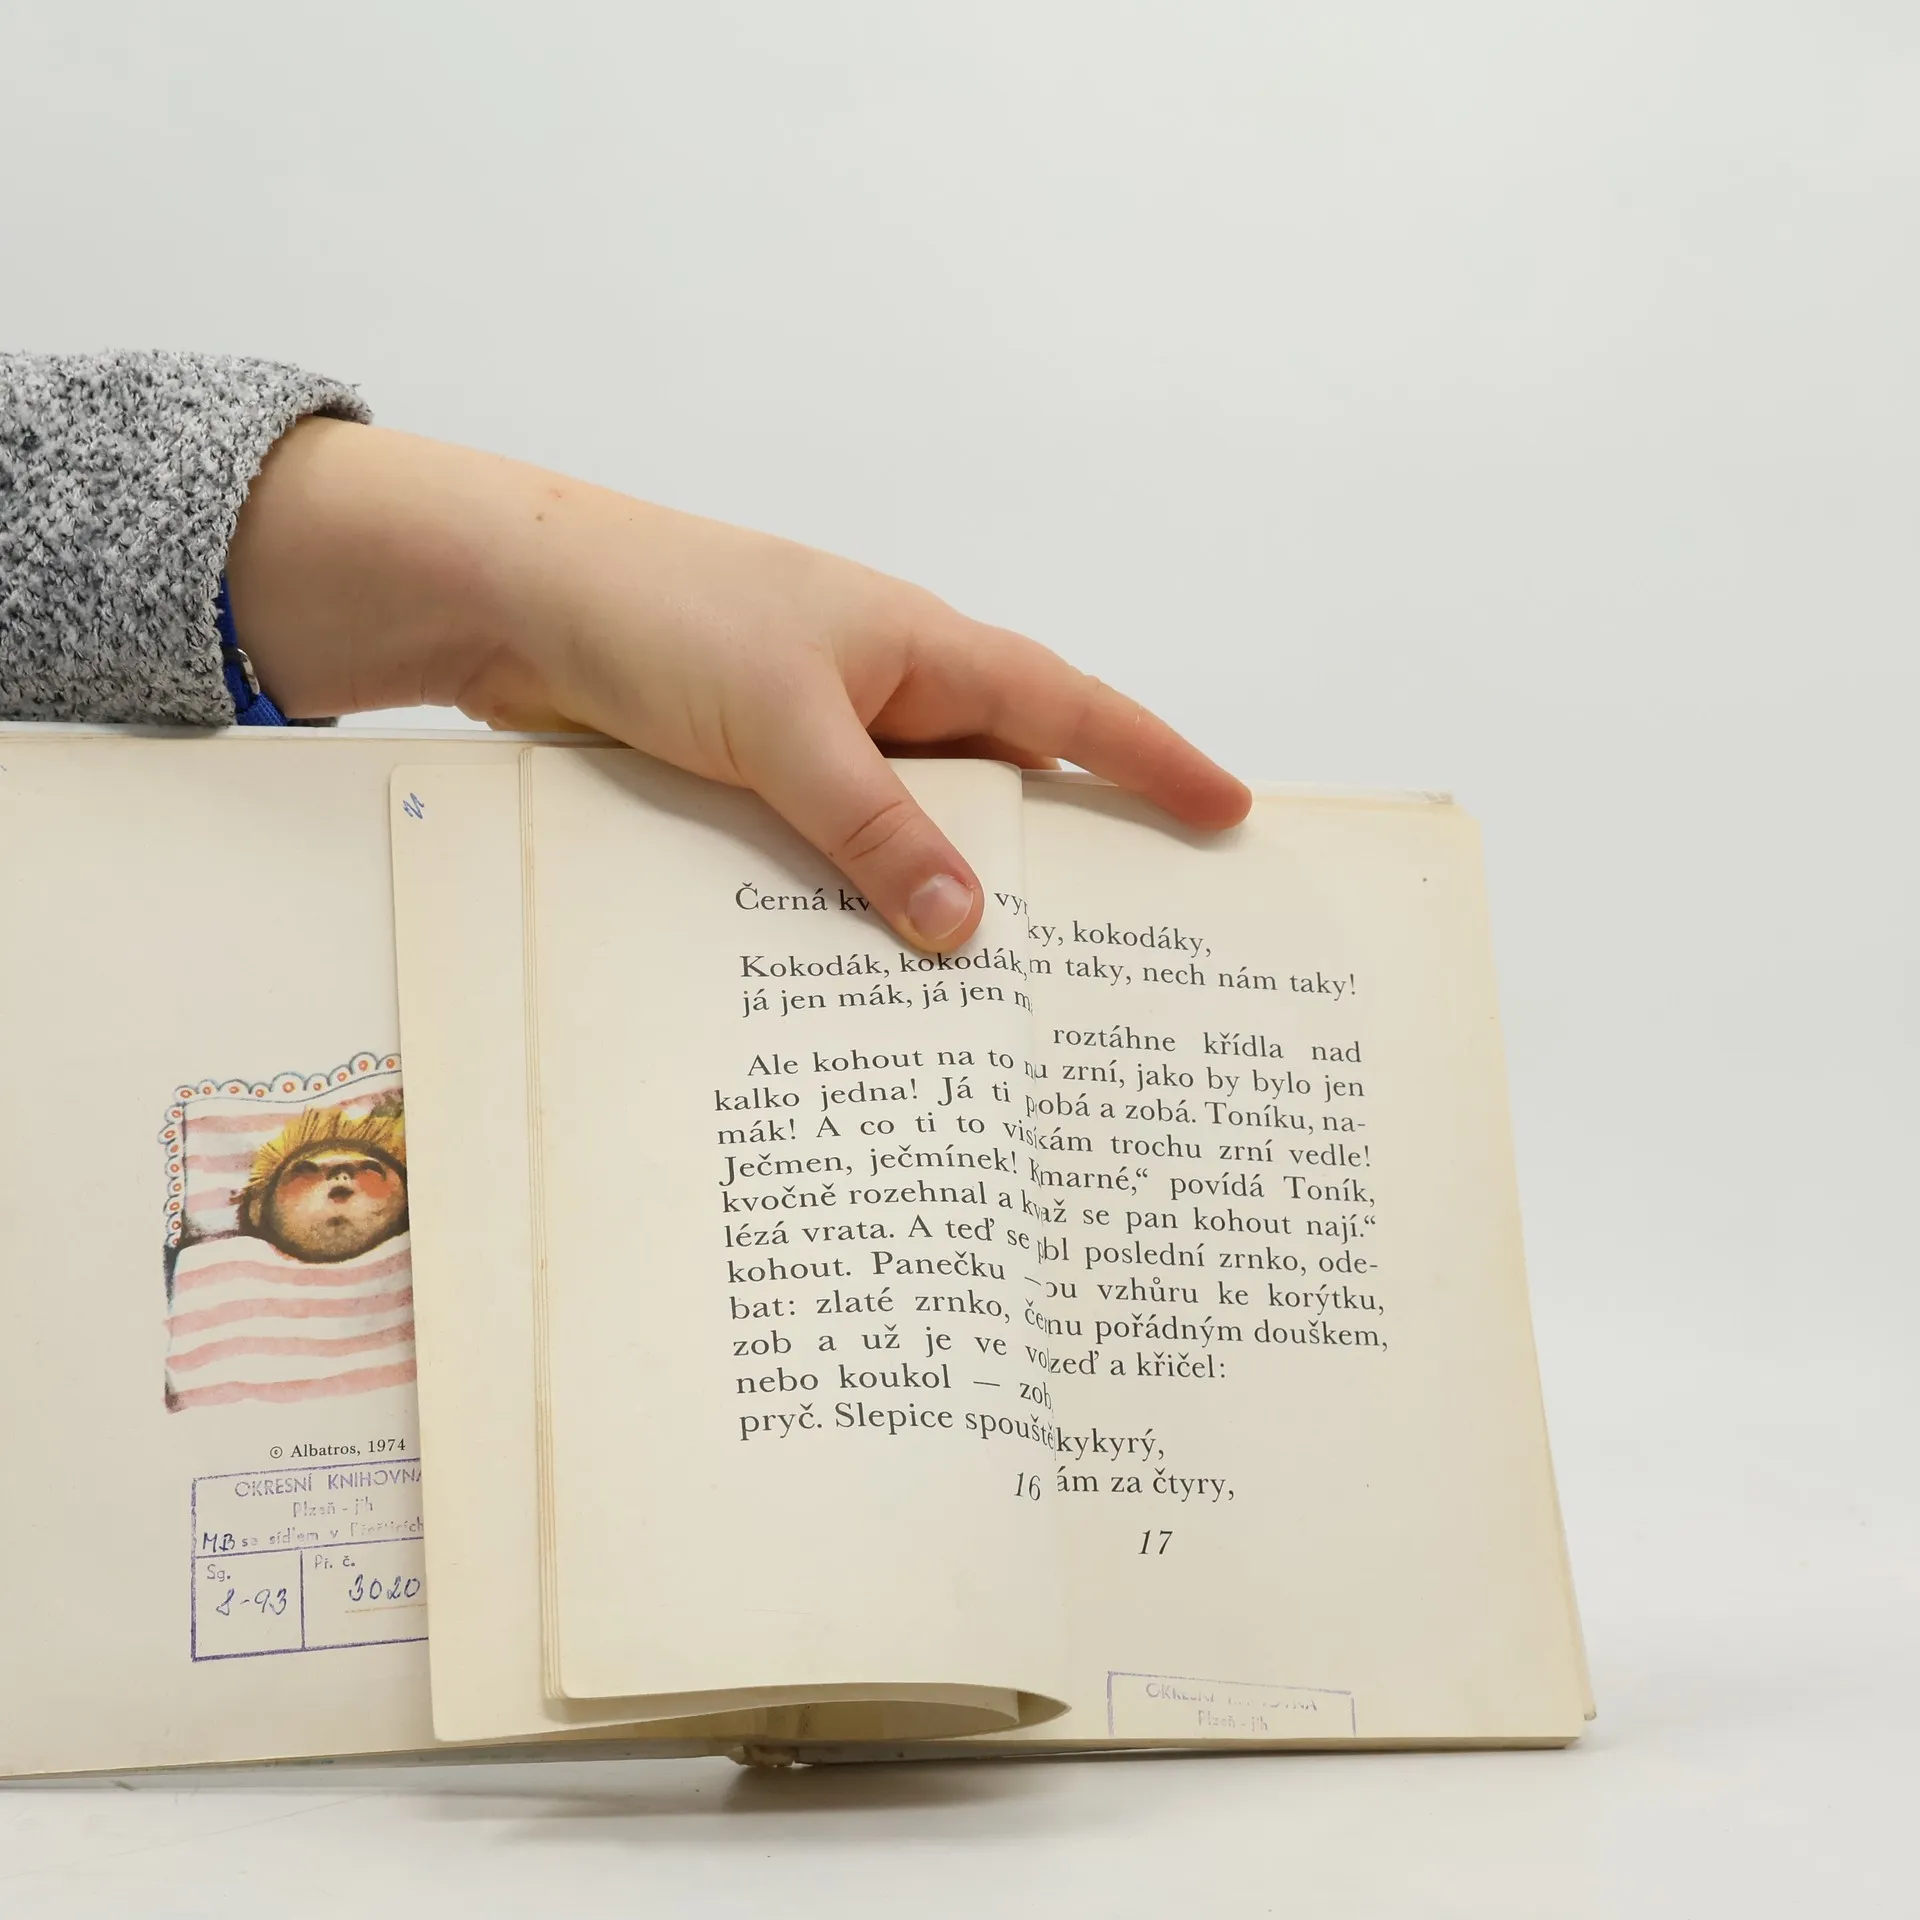 © Albatros, 1974
OKRESNÍ KNIHOVNA
Plzeň - jih
MB se sídlem v
Sg.
8-93
Př. č.
3020
Černá
Kokodák, kokodák,
já jen mák, já jen
Ale kohout na to
kalko jedna! Já ti
mák! A co ti to
Ječmen, ječmínek!
kvočně rozehnal a
lézá vrata. A teď se
kohout. Panečku —
bat: zlaté zrnko,
zob a už je ve
nebo koukol — zob
pryč. Slepice
16
kokodáky,
taky, nech nám taky!
roztáhne křídla nad
zrní, jako by bylo jen
a zobá. Toníku, na-
trochu zrní vedle!
povídá Toník,
až se pan kohout nají.“
poslední zrnko, ode-
vzhůru ke korýtku,
pořádným douškem,
a křičel:
kykyrý,
za čtyry,
17
OKRESNÍ KNIHOVNA
Plzeň - jih